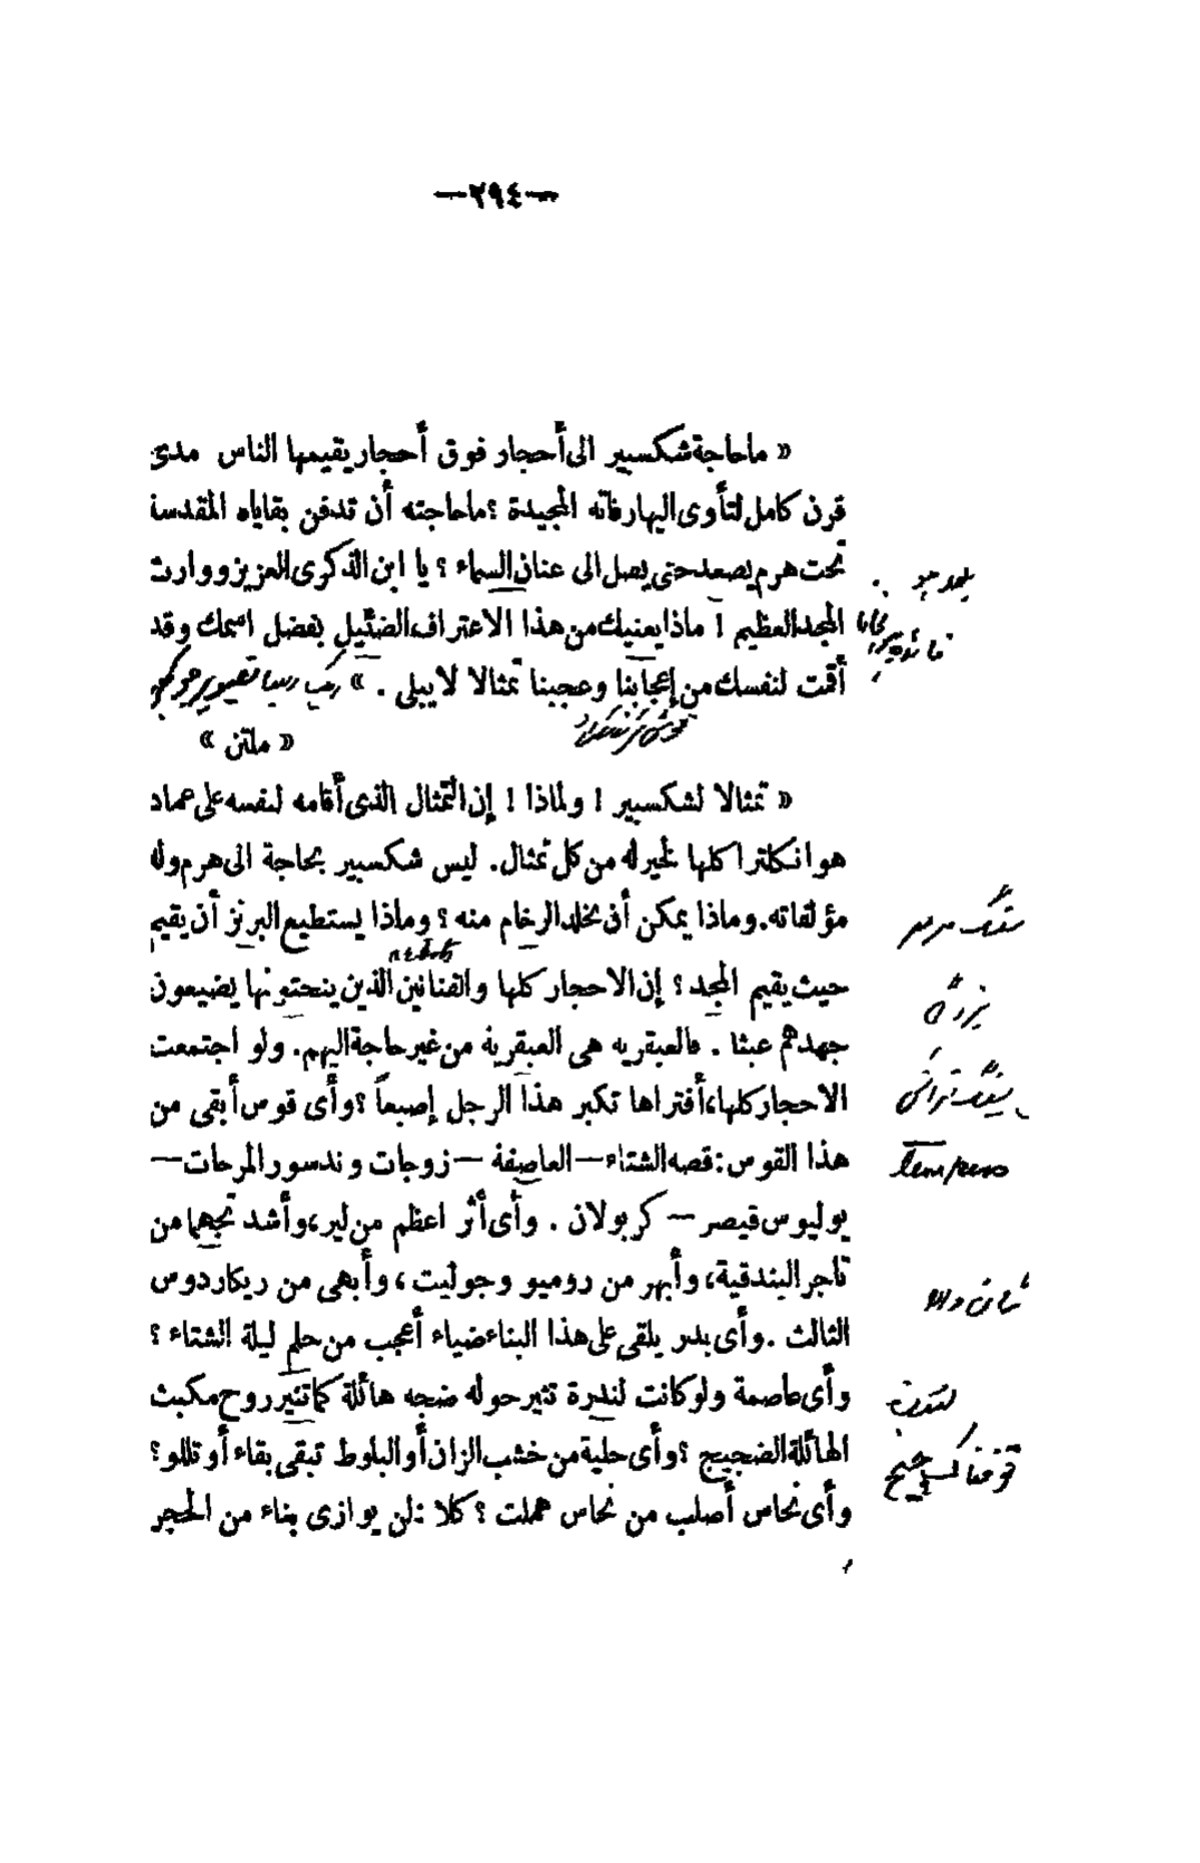 —٢٩٤—
« ماحاجة شكسبير الى أحجار فوق أحجار يقيمها الناس مدى
قرن كامل لتأوى اليها رفاته المجيدة ؟ ماحاجته أن تدفن بقاياه المقدسة
تحت هرم يصعد حتى يصل الى عنان السماء ؟ يا ابن الذكرى العزيز ووارث
المجد العظيم ! ماذا يعنيك من هذا الاعتراف الضئيل بفضل اسمك وقد
أقمت لنفسك من إعجابنا وعجبنا تمثالا لا يبلى . »
« ملتن »
« تمثالا لشكسبير ! ولماذا ! إن التمثال الذى أقامه لنفسه على عماد
هو انكلترا كلها لخير له من كل تمثال. ليس شكسبير بحاجة الى هرم وله
مؤلفاته. وماذا يمكن أن يخلد الرخام منه ؟ وماذا يستطيع البرنز أن يقيم
حيث يقيم المجد ؟ إن الاحجار كلها والفنانين الذين ينحتونها يضيعون
جهدهم عبثا . فالعبقريه هى العبقرية من غير حاجة اليهم. ولو اجتمعت
الاحجار كلها، أفتراها تكبر هذا الرجل إصبعاً ؟ وأى قوس أبقى من
هذا القوس: قصه الشتاء — العاصفة — زوجات وندسور المرحات —
Tempess
يوليوس قيصر — كريولان . وأى أثر اعظم من لير، وأشد تجهما من
تاجر البندقية، وأبهر من روميو وجوليت ، وأبهى من ريكاردوس
الثالث . وأى بدر يلقى على هذا البناء ضياء أعجب من حلم ليلة الشتاء ؟
وأى عاصمة ولو كانت لندرة تثير حوله ضجه هائلة كما تثير روح مكبث
الهائلة الضجيج ؟ وأى حلية من خشب الزان أو البلوط تبقى بقاء أوتللو؟
وأى نحاس أصلب من نحاس هملت ؟ كلا : لن يوازى بناء من الحجر